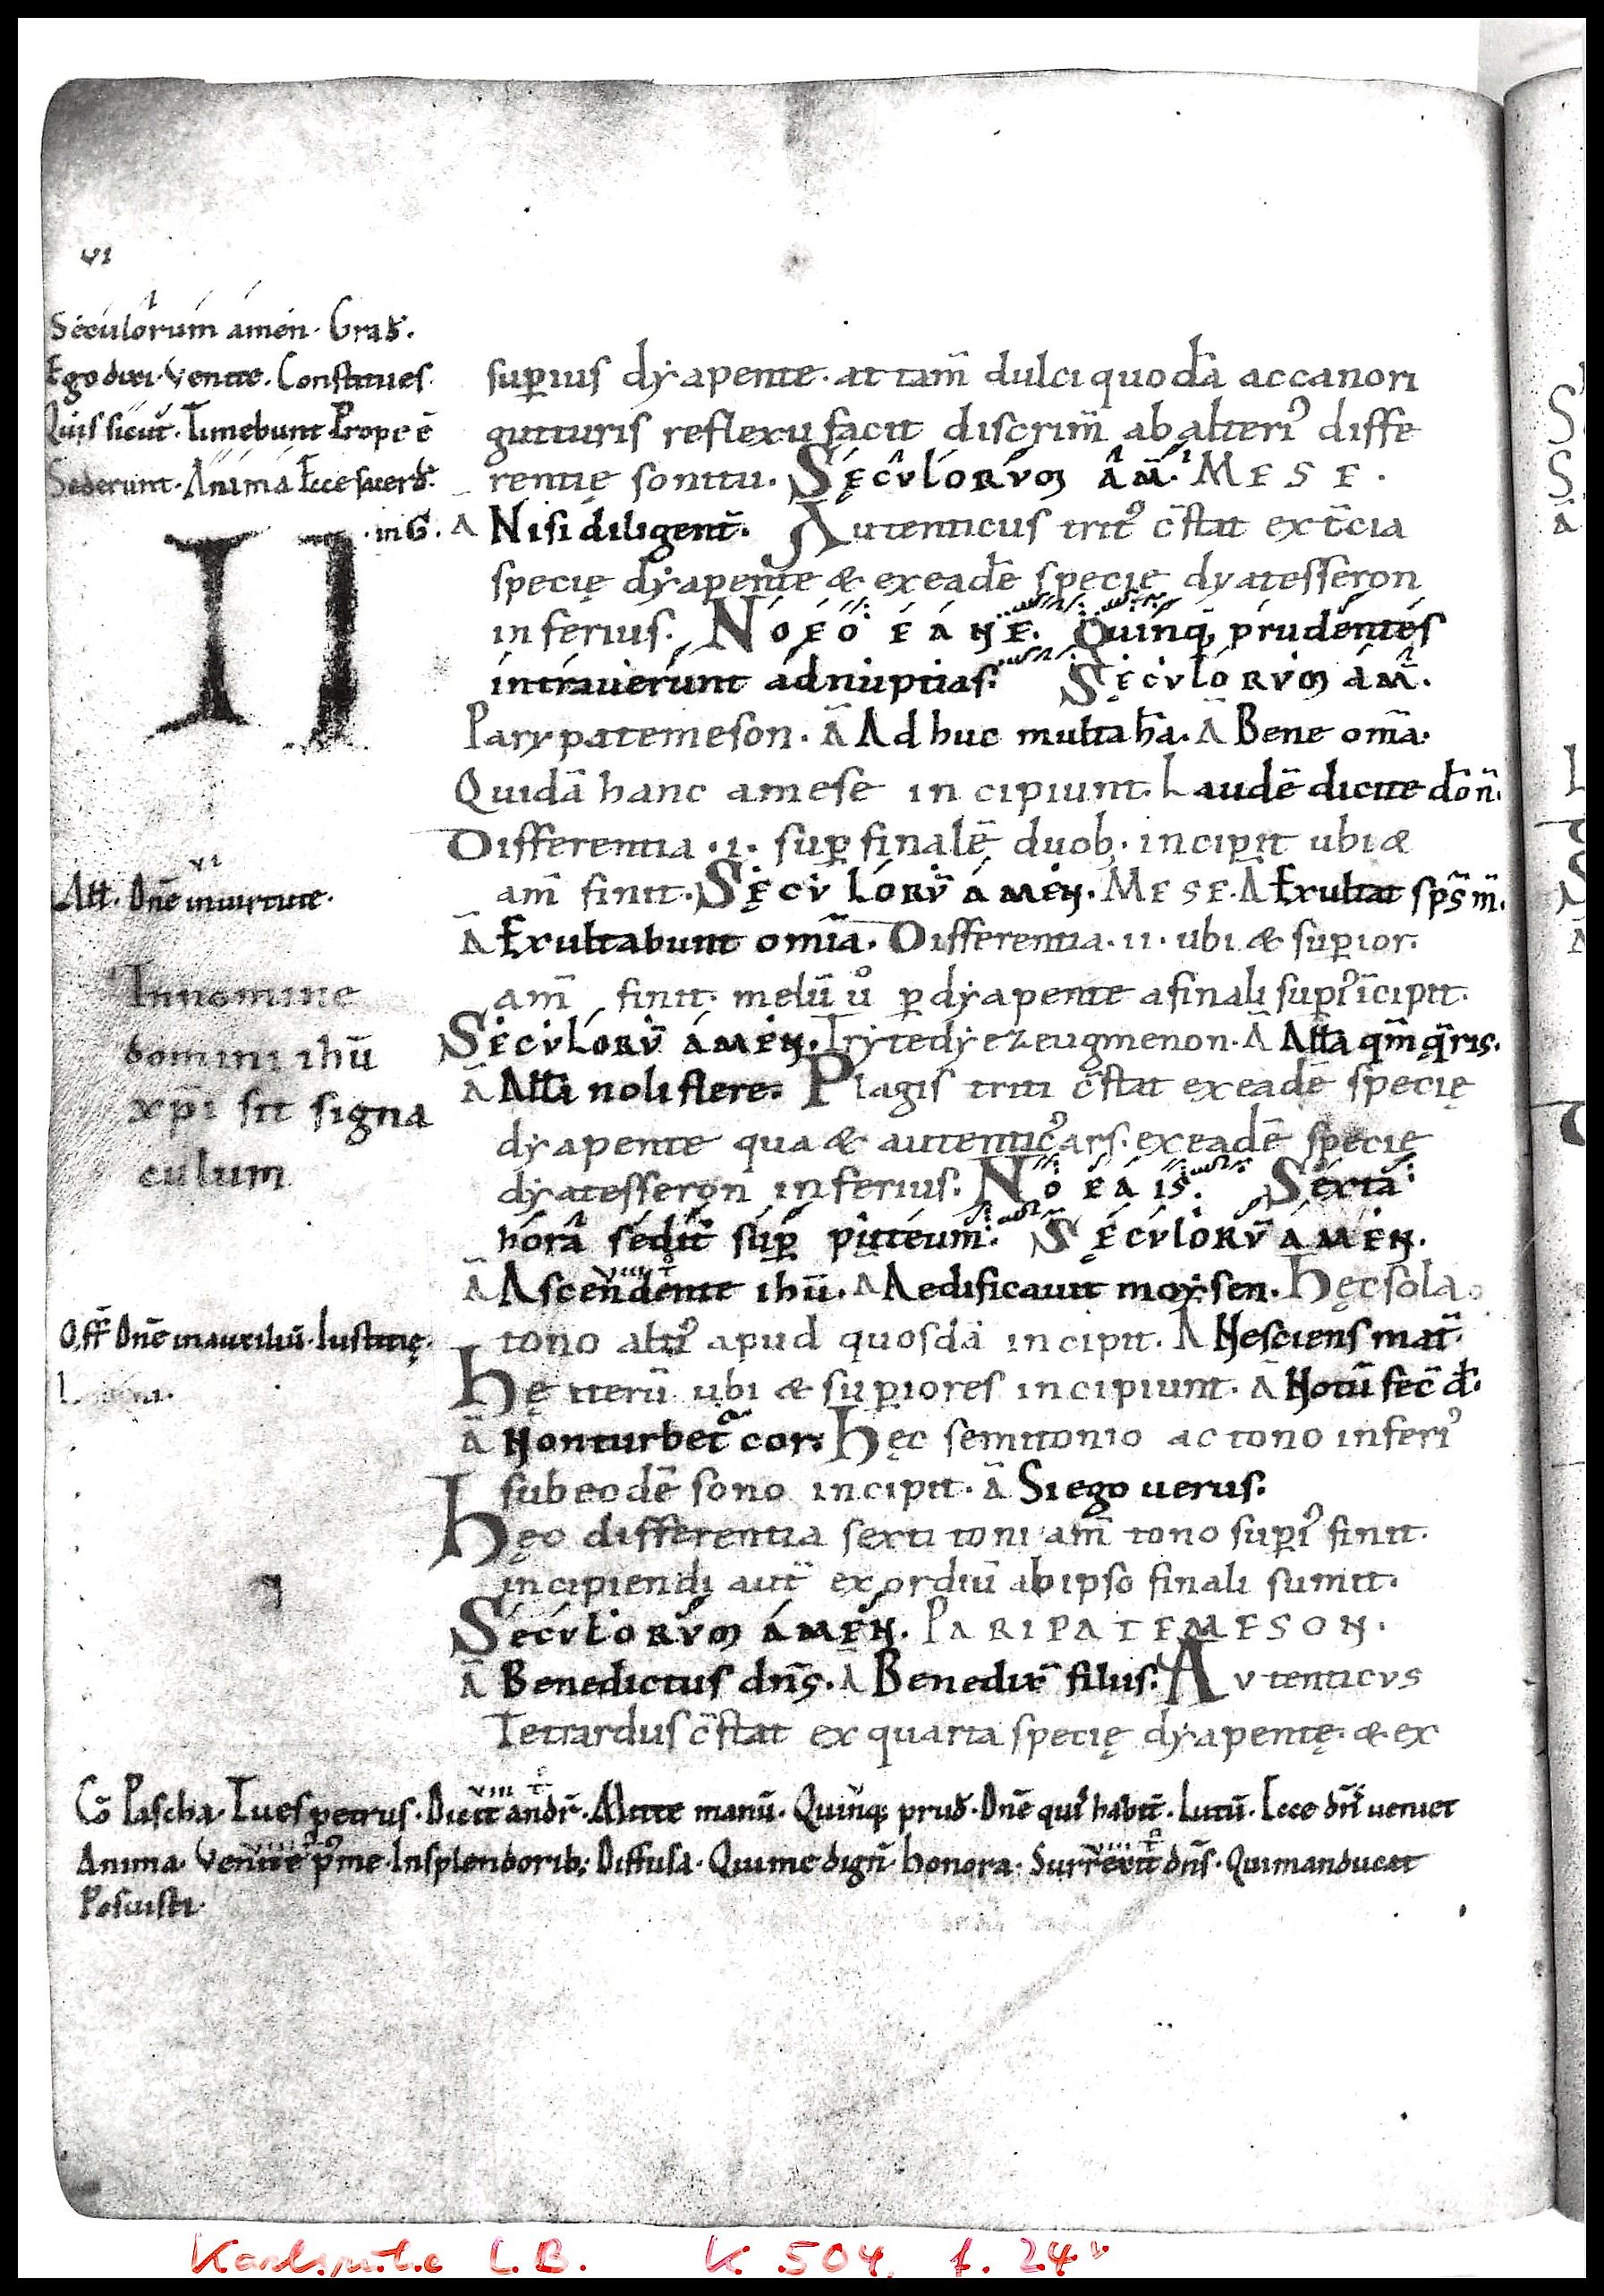 vi
Seculorum amen. Grad̄.
Ego dixi. Venite. Constitues.
Quis sicut. Timebunt. Prope ē
Sederunt. Anima. Ecce sacerd̄.
. in G.
superius dẏapente. at tam̄ dulci quodā ac canori
gutturis reflexu facit discrim̄ ab alteri᾽ diffe
rentię sonitu. SĘCVLORVM AM̄. MESE.
Ā Nisi diligent̄. Autenticus trit᾽ c̄stat ex t̄cia
specię dẏapente & ex eadē specie dyatesseron
inferius. NOEOEANE. Quinq; prudentes
intrauerunt ad nuptias: SĘCVLORVM AM̄.
Parypatemeson. Ā Adhuc multa hā. Ā Bene om̄a.
Quidā hanc amese incipiunt. Laudē dicite dōn̄.
Differentia .i. sup finalē duob; incipit ubi &
am̄ finit. SĘCVLORV̄ AMEN. MESE. Ā Exultat sp̄s m̄.
Ā Exultabunt om̄ia. Differentia .ii. ubi & superior.
am̄ finit. melū u° p dẏapente a finali supi᾽ īcipit.
SECVLORV̄ AMEN. Trẏtedẏezeugmenon. Ā All̄a qm̄ q̄ris.
Ā All̄a noli flere. Plagis triti c̄stat ex eadē specię
dẏapente qua & autentic᾽ ars. ex eadē specie
dẏatesseron inferius. NOEAIS. Sexta
hora sedit sup puteum: SĘCVLORV̄ AMEN.
Ā Ascendente ihū. Ā Aedificauit moẏsen. Hęc sola
tono alti᾽ apud quosdā incipit. Ā Nesciens mat̄.
Hę iterū ubi & superiores incipiunt. Ā Notū fec̄ d̄.
Ā Non turbet̄ cor: Hęc semitonio ac tono inferi᾽
sub eodē sono incipit. Ā Si ego uerus.
Hęc differentia sexti toni am̄ tono supi᾽ finit.
incipiendi aut̄ exordiū ab ipso finali sumit.
SECVLORVM AMEN. PARIPATEMESON.
Ā Benedictus dn̄s. Ā Benedix̄ filius. AVTENTICVS
Tetrardus c̄stat ex quarta specię dẏapentę. & ex
vi
All̄. Dn̄e in uirtute.
In nomine
domini ihū
xp̄i sit signa
culum
Off̄ Dn̄e in auxiliū. Iustitię.
viii t
viii t
Cō Pascha. Tu es petrus. Dicit andr̄. Mitte manū. Quinq; prud̄. Dn̄e qui habit̄. Lutū. Ecce dn̄ ueniet
viiii t
viii t
Anima. Venite p᾽ me. In splendorib; Diffusa. Qui me dign̄. Honora. Surrexit dn̄s. Qui manducat
Posuisti.
Karlsruhe L.B. K 504, f. 24v